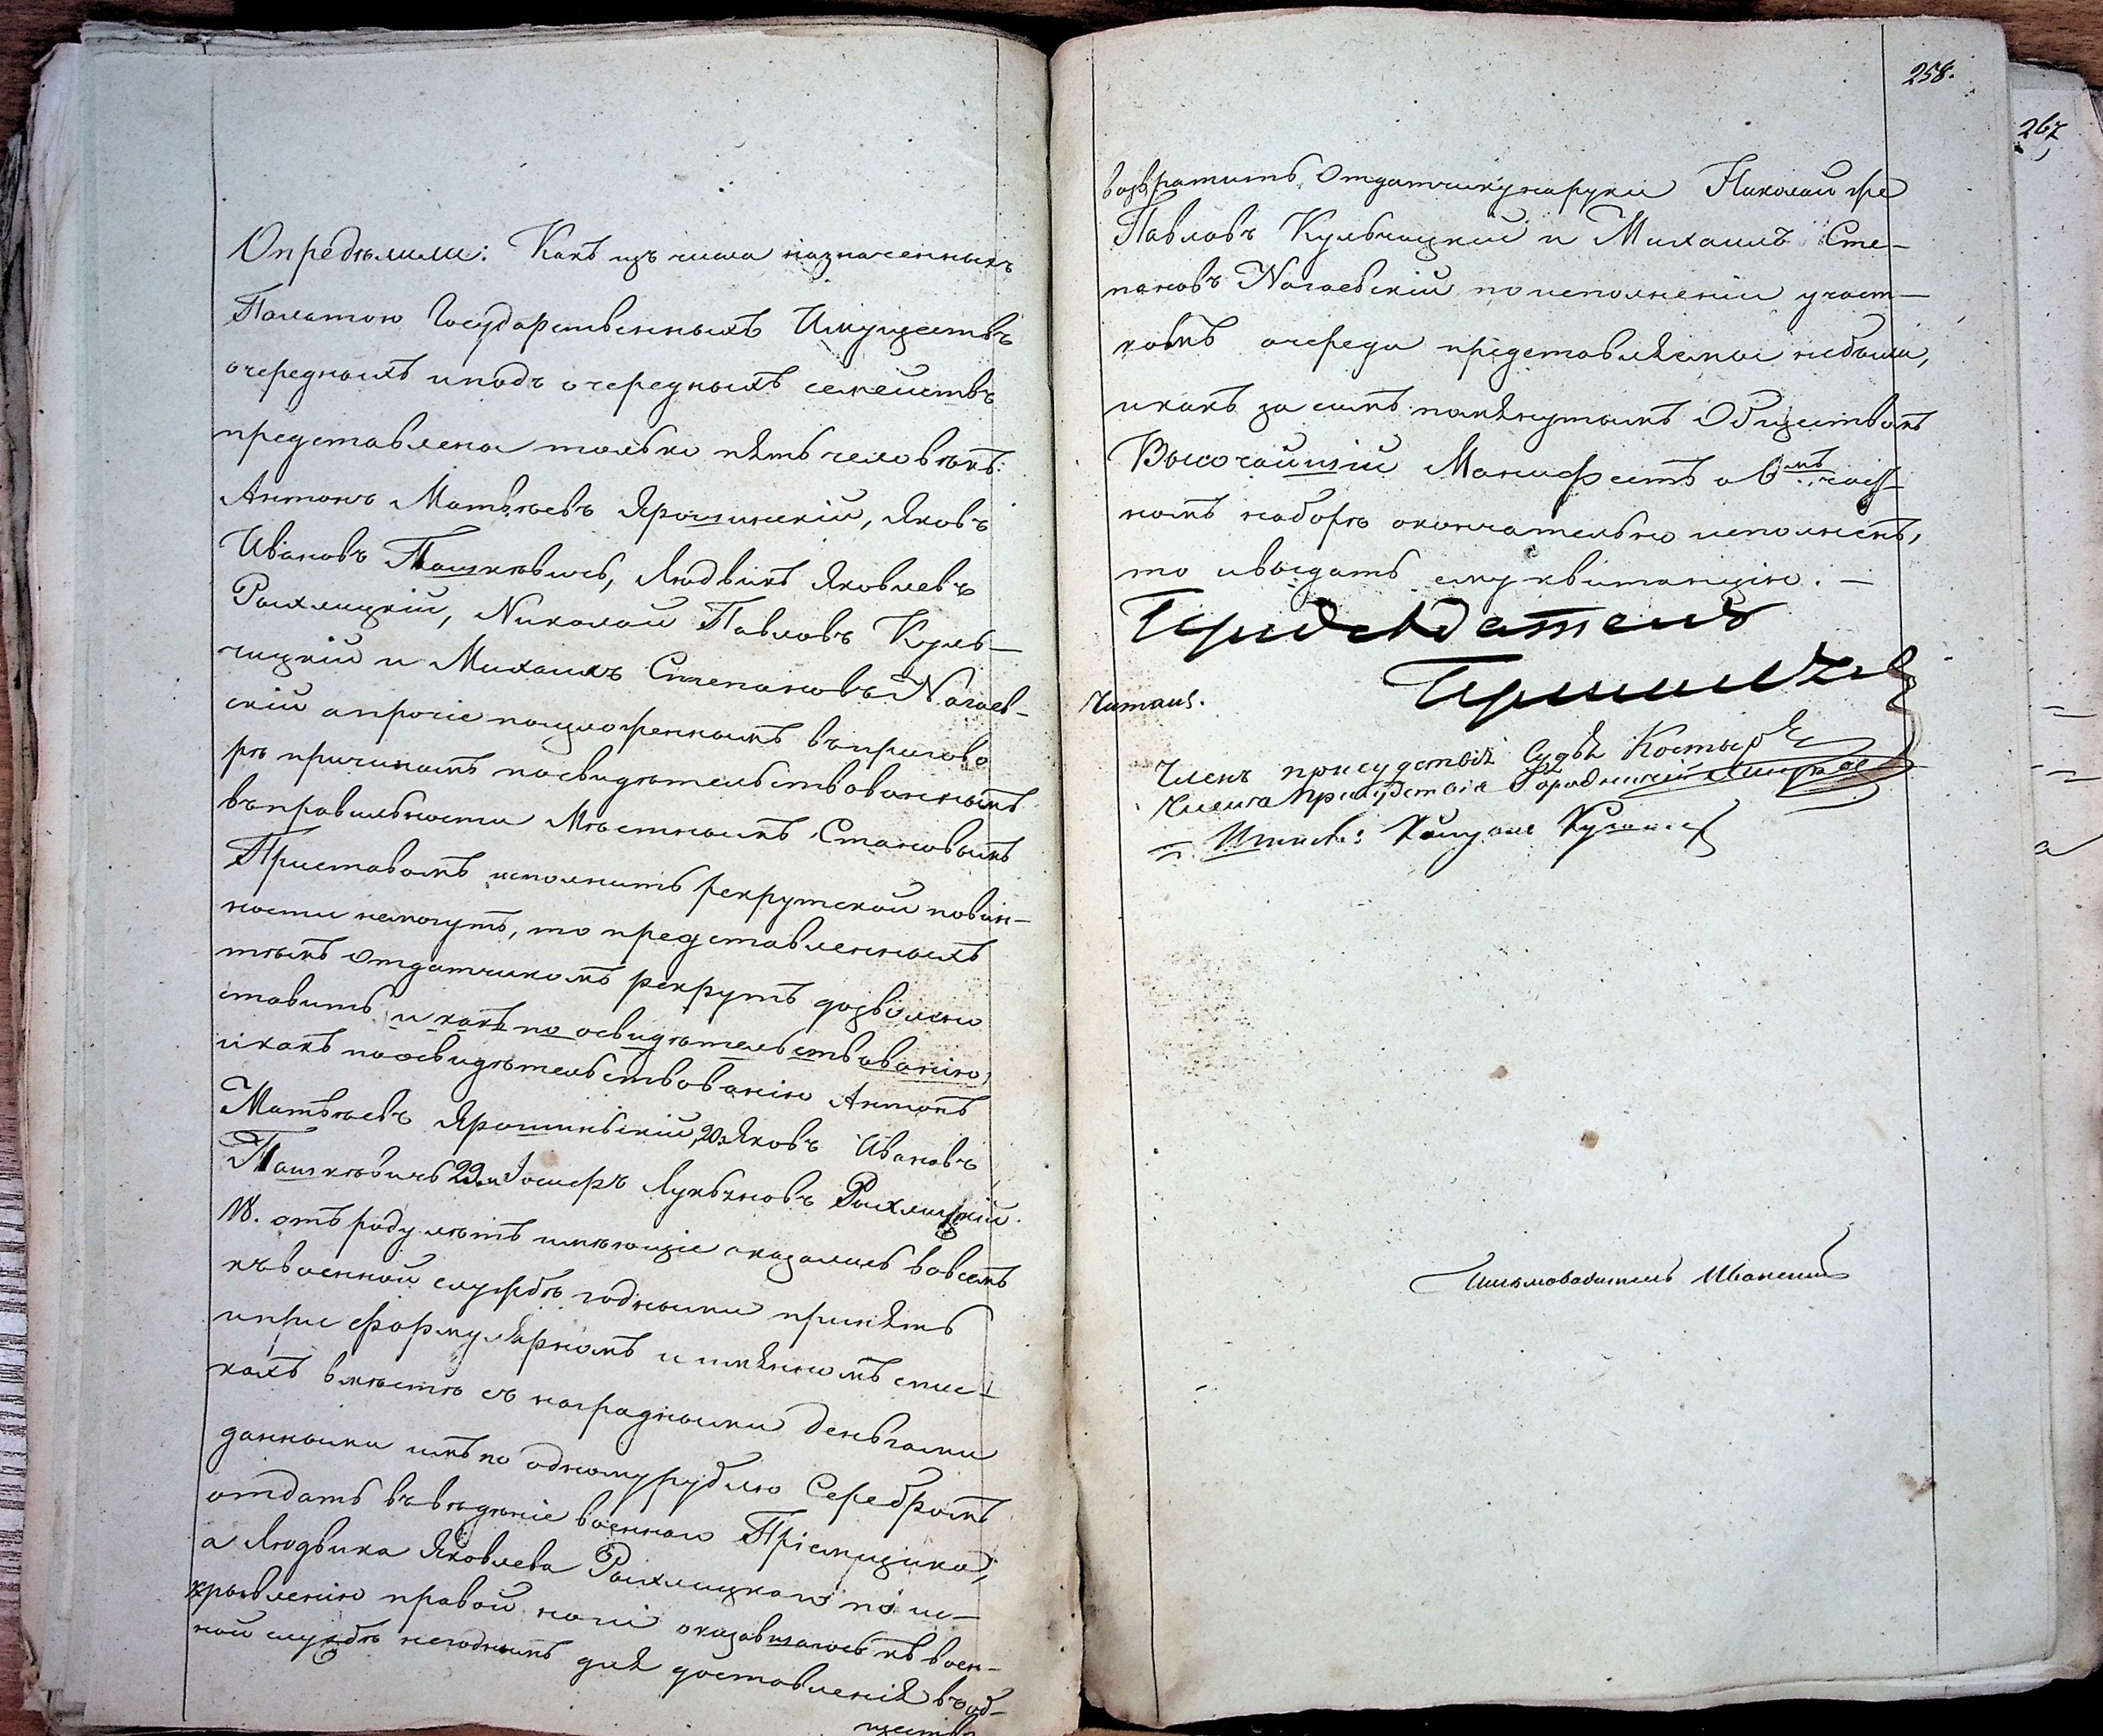 Опредѣлили: Какъ изъ числа назначенныхъ
Палатою Государственныхъ Имуществъ
очередныхъ иподъ очередныхъ семействъ
представлена только пять человѣкъ:
Антонъ Матвѣевъ Ярошинскій, Яковъ
Ивановъ Пашкѣвичь, Людвикъ Яковлевъ
Рыхлицкій, Николай Павловъ Куль-
чицкій и Михаилъ Степановъ Nагаев-
скій апрочіе поизложеннымъ въпригово
рѣ причинамъ посвидѣтельствованнымъ
въправильности Мѣстнымъ Становымъ
Приставомъ исполнить рекрутской повин-
ности немогутъ, то представленныхъ
тѣмъ отдатчикомъ рекрутъ дозволено
ставить и какъ по освидѣтельствованію,
икакъ поосвидѣтельствованію Антонъ
Матвѣевъ Ярошинскій 20. Яковъ Ивановъ
Пашкѣвичь 22. и Іосифъ Лукьяновъ Рыхлицкій
18. отъ роду лѣтъ имѣющіе оказались вовсемъ
къвоенной службѣ годными принять
ипри формулярномъ и имянномъ спис-
кахъ вмѣстѣ съ наградными деньгами
данными имъ по одному рублю Серебромъ
отдать въвѣдѣніе военнаго Пріемщика,
а Людвика Яковлева Рыхлицкаго по ис-
кривленію правой ноги оказавшагось къ воен-
ной службѣ негоднымъ для доставленія въоб-
щество
258.
267
возвратить отдатчику наруки Николай же
Павловъ Кульчицкій и Михаилъ Сте-
пановъ Nагаевскій поисполненіи участ-
комъ очереди представляемы небыли,
икакъ за симъ помянутымъ Обществомъ
Высочайшій Манифестъ о 6мъ част-
номъ наборѣ окончательно исполненъ,
то ивыдать ему квитанцію. —
Предсѣдатель
Читалъ.
Членъ присудствія Судья
Члена Присудствія Городничій
Письмоводитель